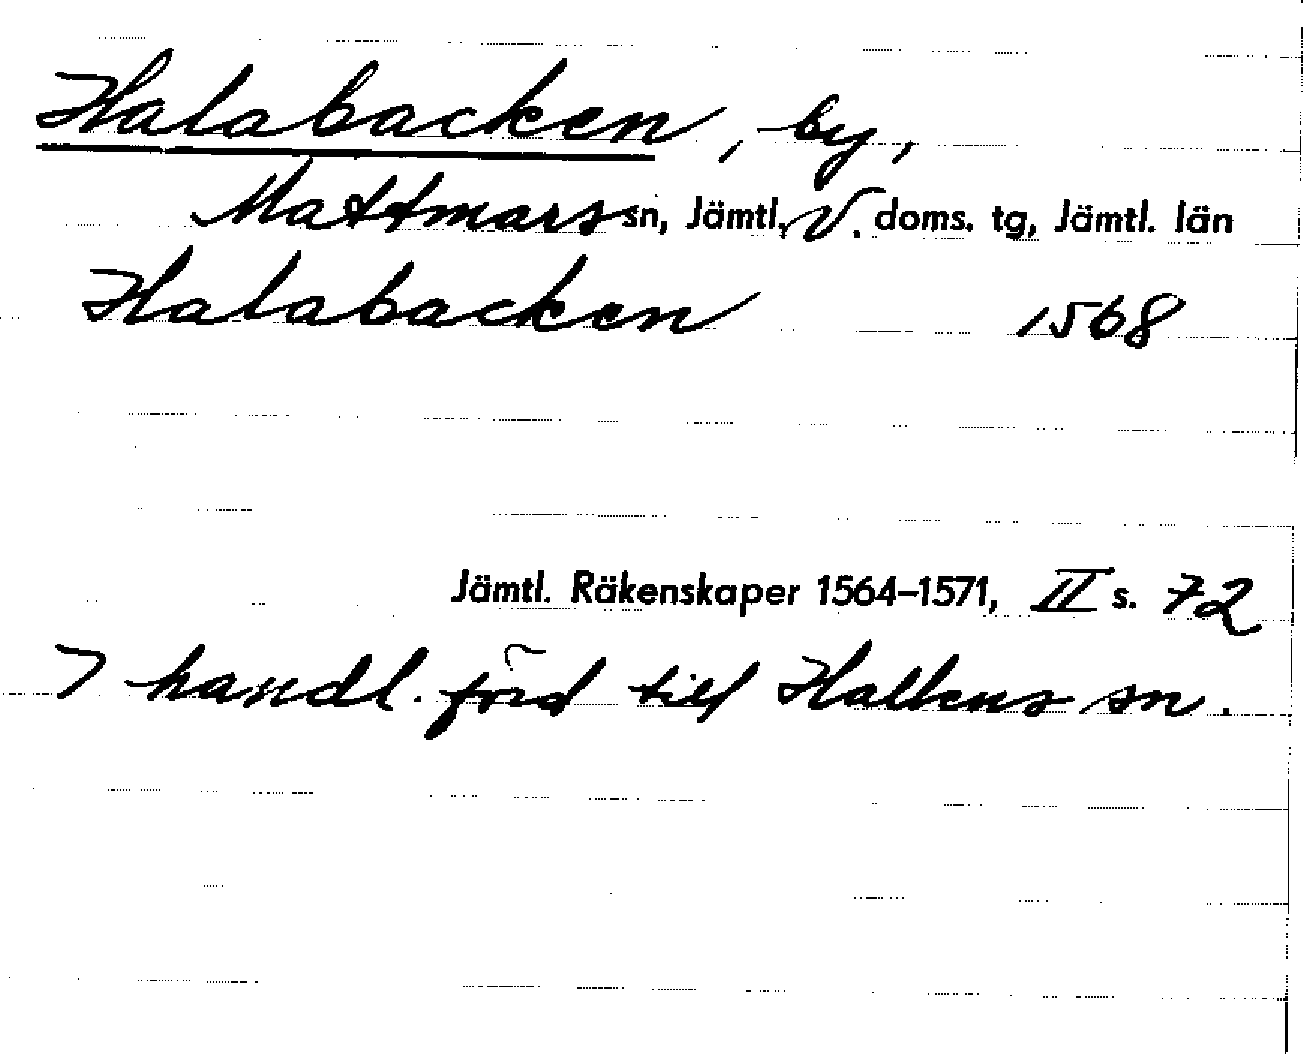 Halabacken, by,
Mattmars sn, Jämtl, V. doms. tg, Jämtl. län
Halabacken 1568
Jämtl. Räkenskaper 1564–1571, II s. 72
I handl. förd till Hallens sn.